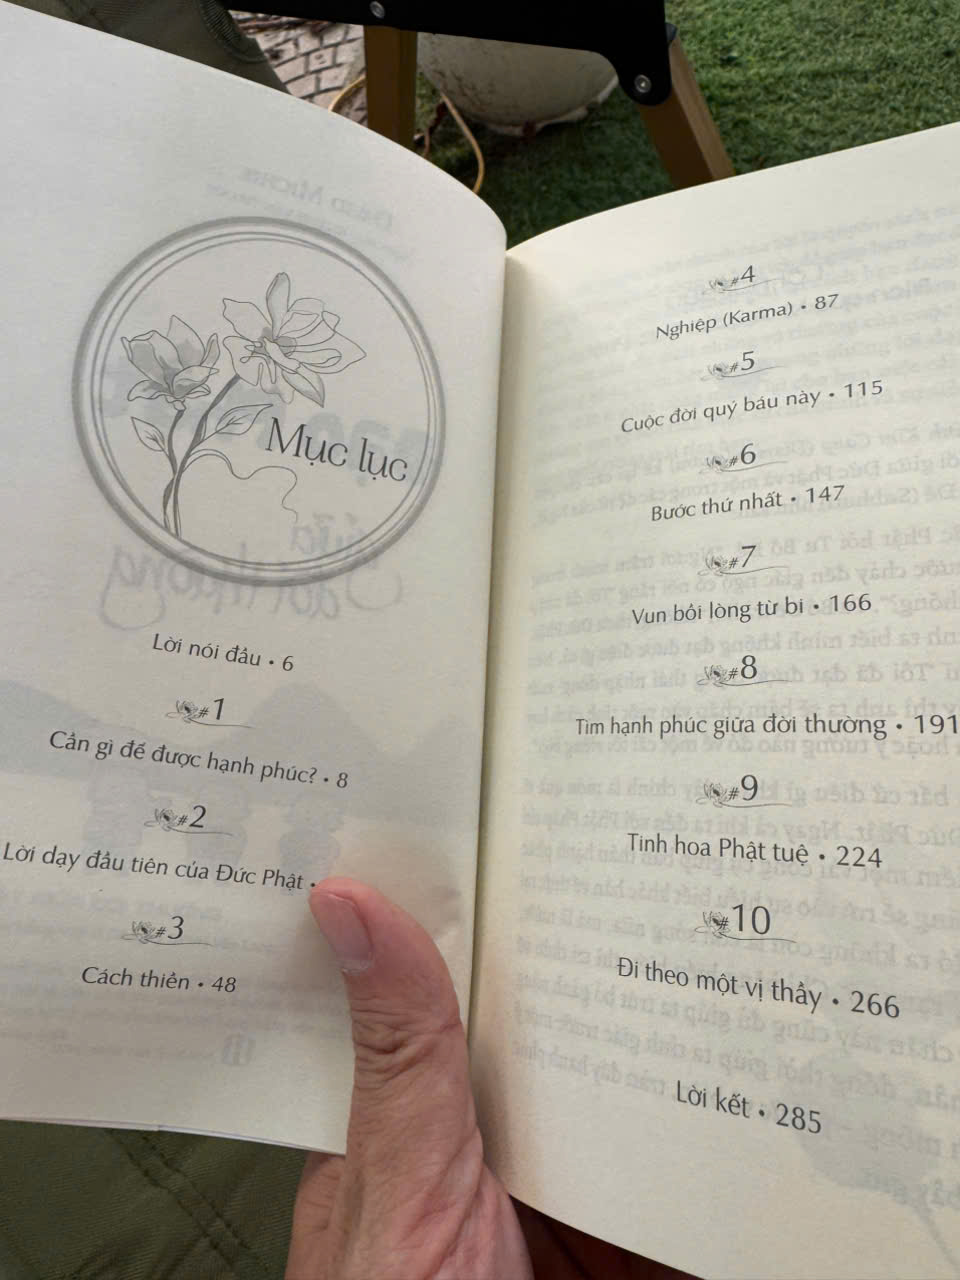 Mục lục
Lời nói đầu • 6
#1
Cần gì để được hạnh phúc? • 8
#2
Lời dạy đầu tiên của Đức Phật •
#3
Cách thiền • 48
#4
Nghiệp (Karma) • 87
#5
Cuộc đời quý báu này • 115
#6
Bước thứ nhất • 147
#7
Vun bồi lòng từ bi • 166
#8
Tìm hạnh phúc giữa đời thường • 191
#9
Tinh hoa Phật tuệ • 224
#10
Đi theo một vị thầy • 266
Lời kết • 285